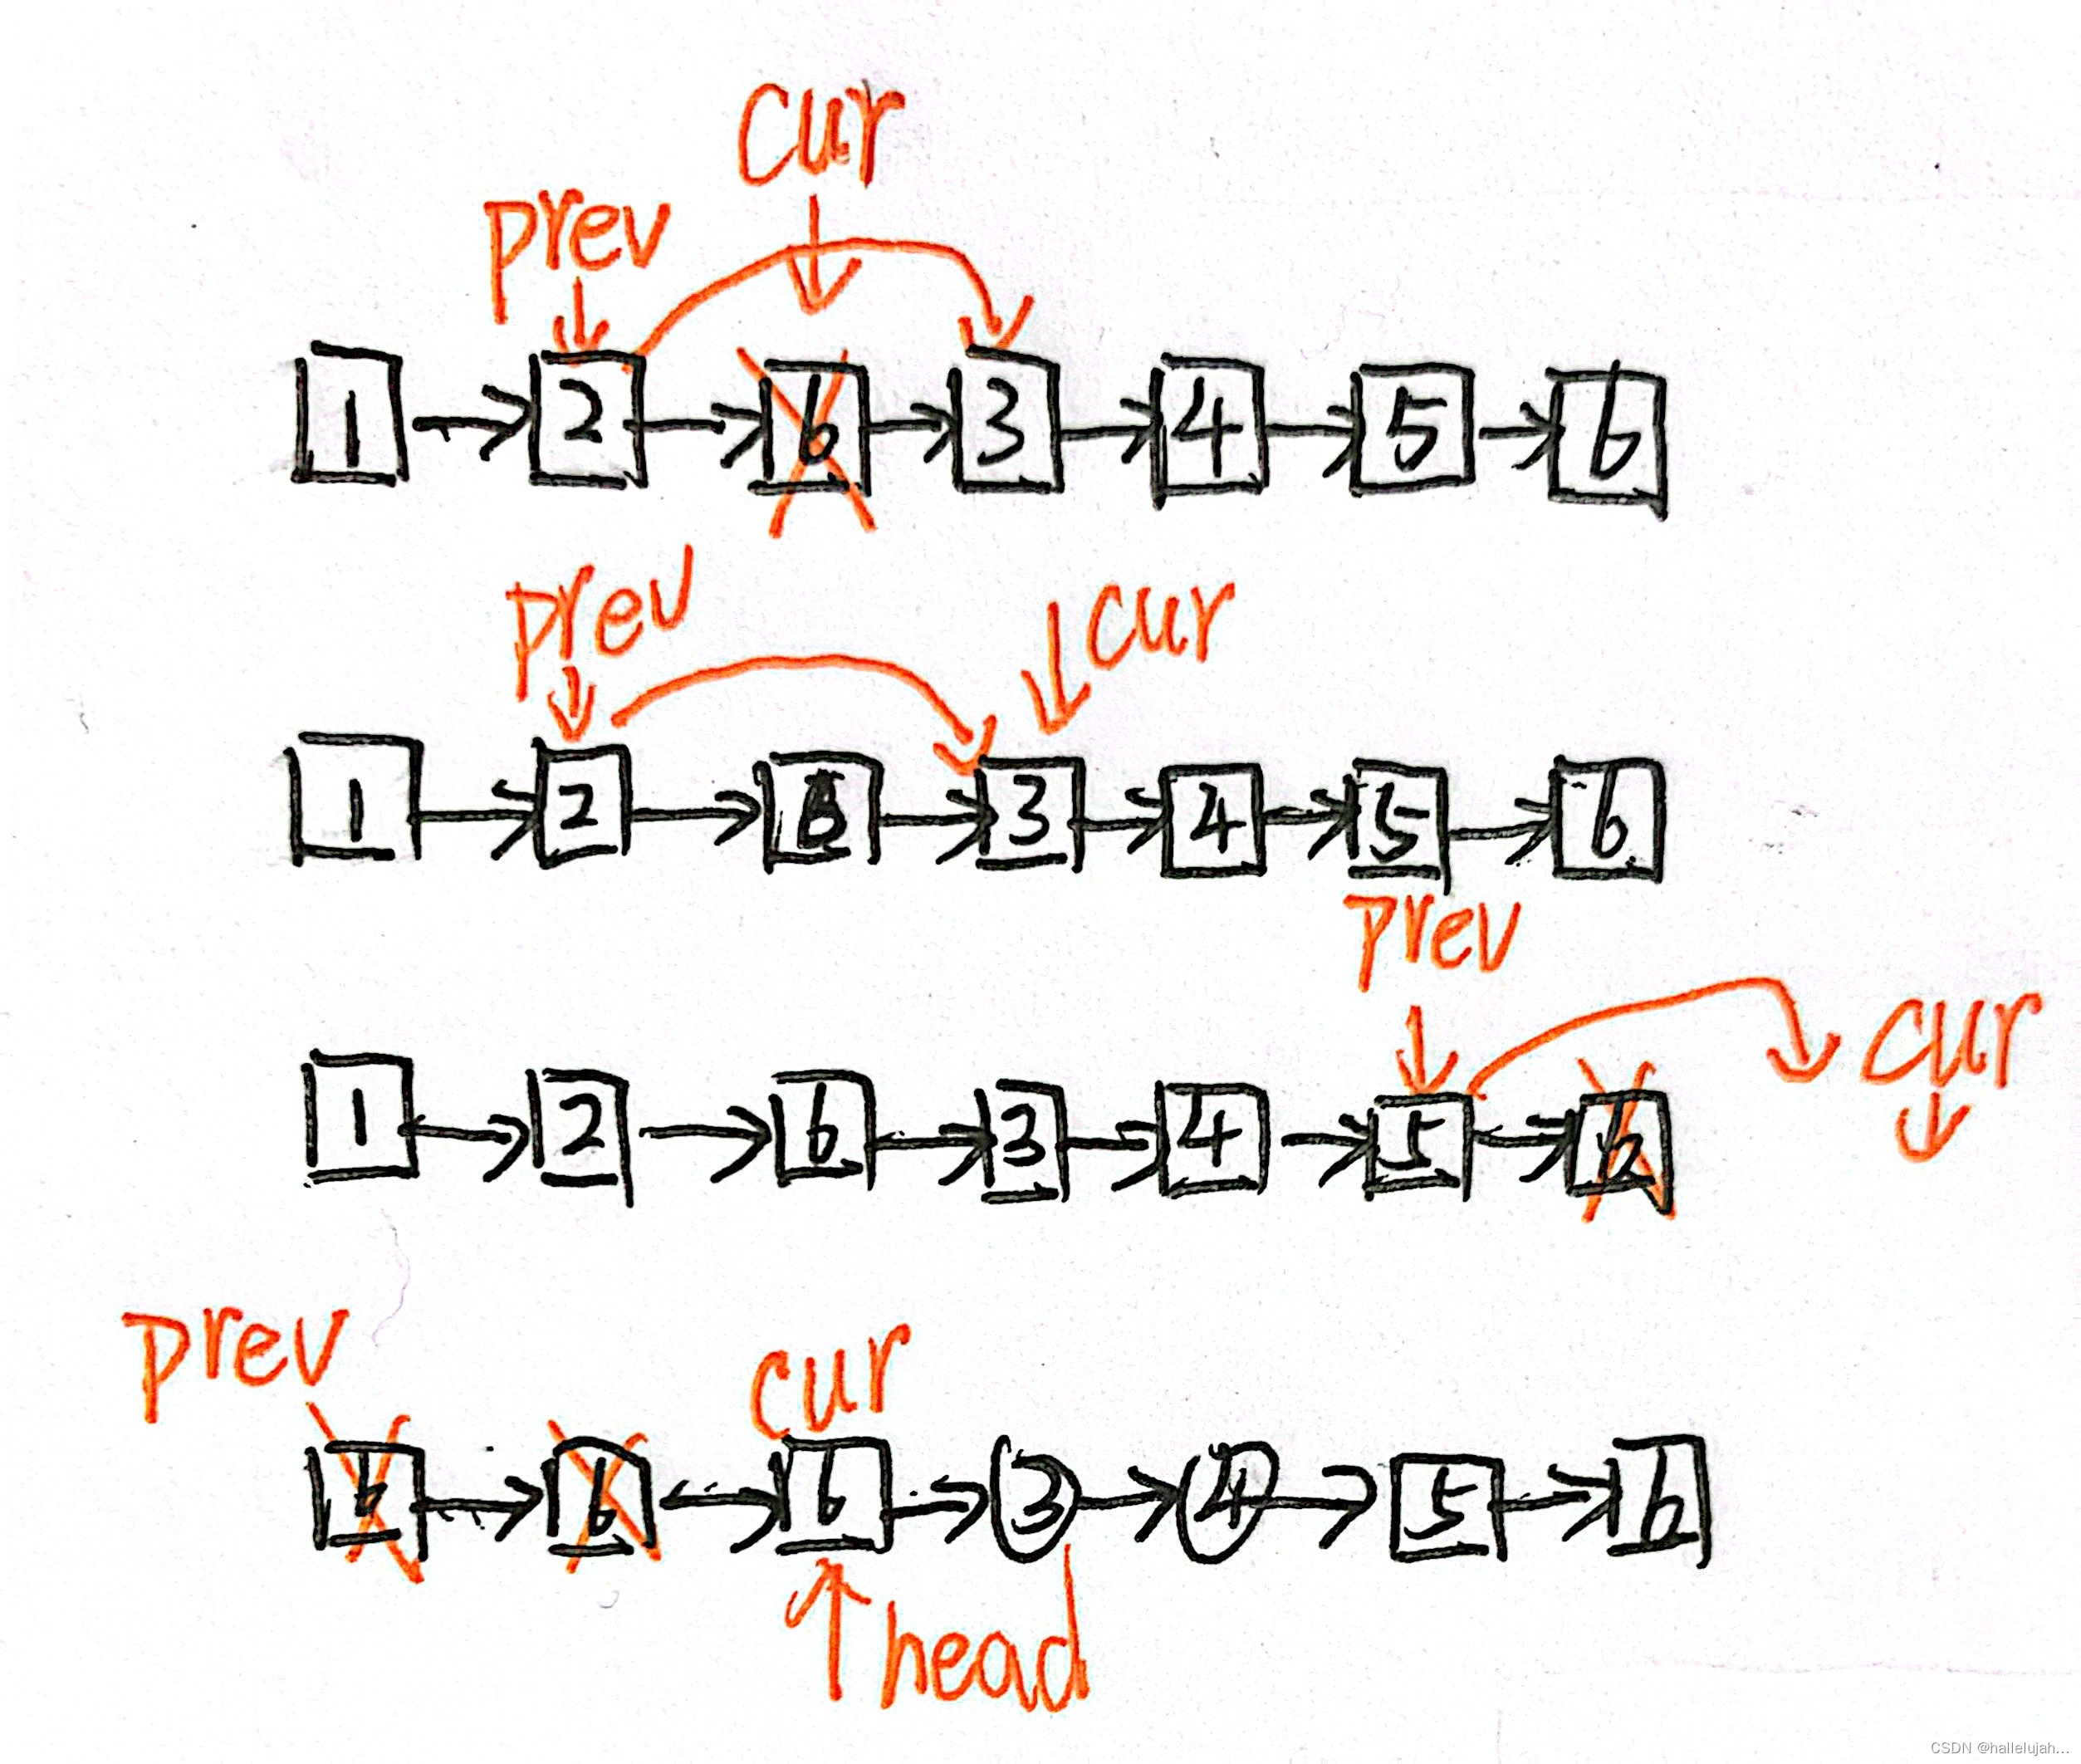 cur
prev
1 2 6 3 4 5 6
prev cur
1 2 6 3 4 5 6
prev
cur
1 2 6 3 4 5 6
prev cur
6 6 6 3 4 5 6
head
CSDN @hallelujah...